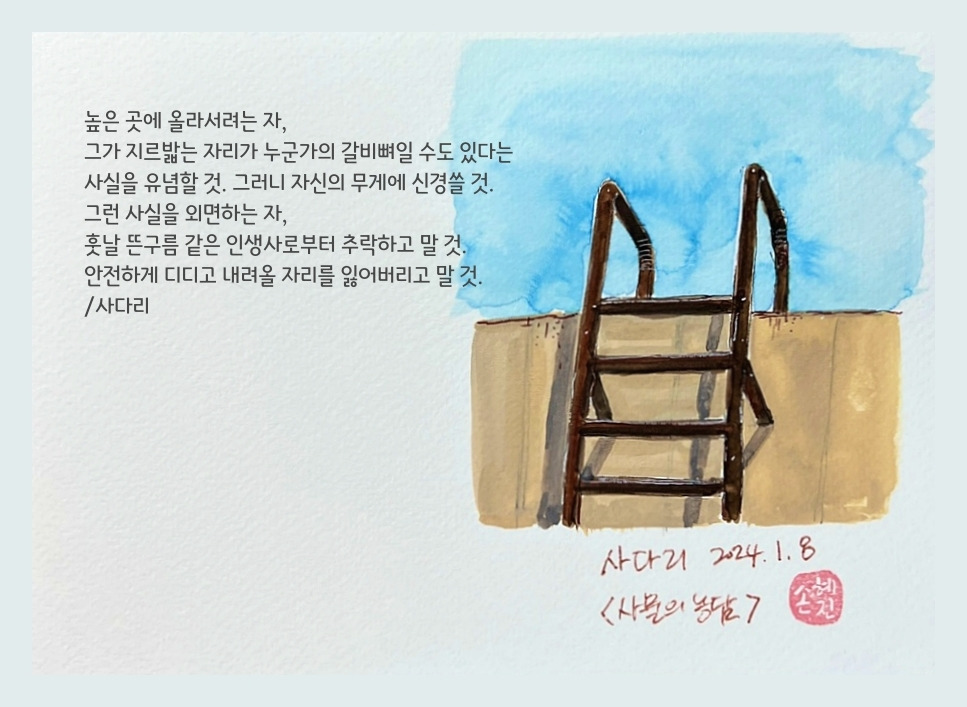 높은 곳에 올라서려는 자,
그가 지르밟는 자리가 누군가의 갈비뼈일 수도 있다는
사실을 유념할 것. 그러니 자신의 무게에 신경쓸 것.
그런 사실을 외면하는 자,
훗날 뜬구름 같은 인생사로부터 추락하고 말 것.
안전하게 디디고 내려올 자리를 잃어버리고 말 것.
/사다리
사다리 2024.1.8
<사물의 농담>
손혜진